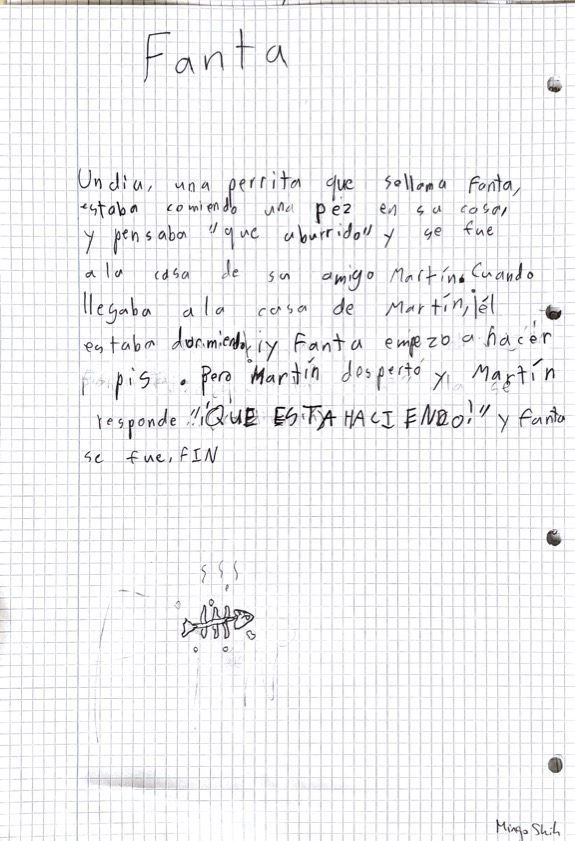 Fanta
Un dia, una perrita que sellama Fanta,
estaba comiendo una pez en su casa,
y pensaba "que aburrido" y se fue
a la casa de su amigo Martín. Cuando
llegaba a la casa de Martín, ¡él
estaba durmiendo! ¡y Fanta empezo a hacer
pis. Pero Martín despertó y Martín
responde "¡QUE ESTA HACIENDO!" y Fanta
se fue, FIN
Mingo Shih